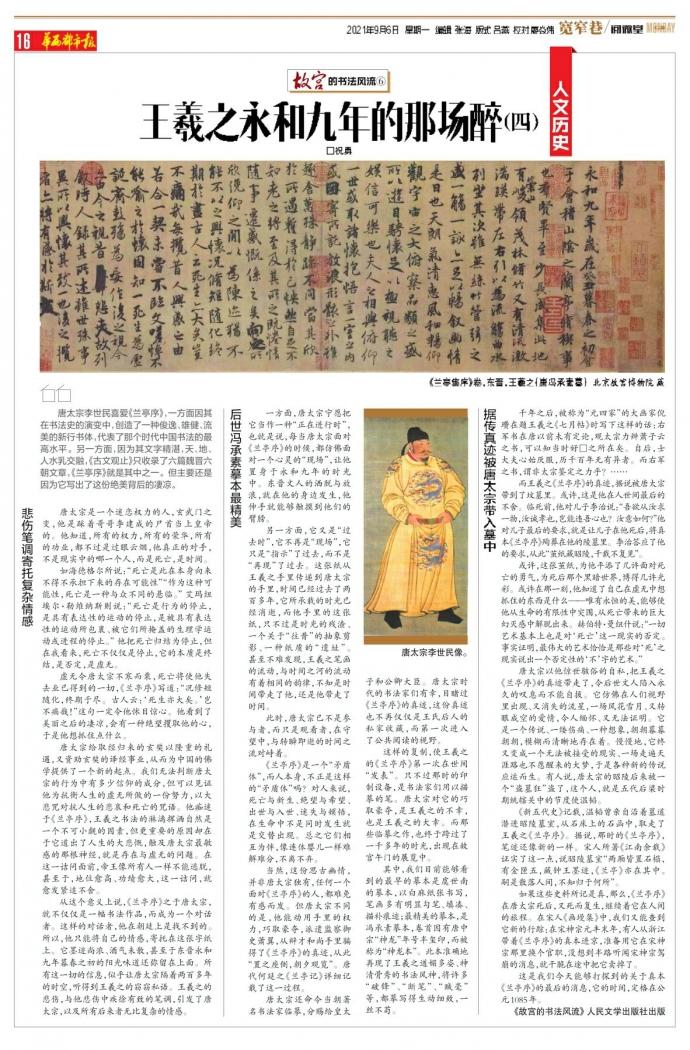 16 华西都市报
2021年9月6日 星期一 编辑 张海 版式 吕燕 校对 廖焱炜 宽窄巷/阅微堂 MONDAY
人文历史
故宫的书法风流⑥
王羲之永和九年的那场醉(四)
□祝勇
永和九年岁在癸丑暮春之初会
于会稽山阴之兰亭修禊事
也群贤毕至少长咸集此地
有崇山峻领茂林修竹又有清流激
湍映带左右引以为流觞曲水
列坐其次虽无丝竹管弦之
盛一觞一咏亦足以畅叙幽情
是日也天朗气清惠风和畅仰
观宇宙之大俯察品类之盛
所以游目骋怀足以极视听之
娱信可乐也夫人之相与俯仰
一世或取诸怀抱悟言一室之内
《兰亭集序》卷,东晋,王羲之(唐冯承素摹) 北京故宫博物院 藏
唐太宗李世民喜爱《兰亭序》,一方面因其
在书法史的演变中,创造了一种俊逸、雄健、流
美的新行书体,代表了那个时代中国书法的最
高水平。另一方面,因为其文字精湛,天、地、
人水乳交融,《古文观止》只收录了六篇魏晋六
朝文章,《兰亭序》就是其中之一。但主要还是
因为它写出了这份绝美背后的凄凉。
悲伤笔调寄托复杂情感
唐太宗是一个迷恋权力的人,玄武门之
变,他是踩着哥哥李建成的尸首当上皇帝
的。他知道,所有的权力,所有的荣华,所有
的功业,都不过是过眼云烟,他真正的对手,
不是现实中的哪一个人,而是死亡,是时间。
如海德格尔所说:“死亡是此在本身向来
不得不承担下来的存在可能性”“作为这种可
能性,死亡是一种与众不同的悬临。”艾玛纽
埃尔·勒维纳斯则说:“死亡是行为的停止,
是具有表达性的运动的停止,是被具有表达
性的运动所包裹、被它们所掩盖的生理学运
动或进程的停止。”他把死亡归结为停止,但
在我看来,死亡不仅仅是停止,它的本质是终
结,是否定,是虚无。
虚无令唐太宗不寒而栗,死亡将使他失
去业已得到的一切,《兰亭序》写道:“况修短
随化,终期于尽。古人云:‘死生亦大矣。’岂
不痛哉!”这句一定令他怵目惊心。他看到了
美丽之后的凄凉,会有一种绝望攫取他的心,
于是他想抓住点什么。
唐太宗给取经归来的玄奘以隆重的礼
遇,又资助玄奘的译经事业,从而为中国的佛
学提供了一个新的起点。我们无法判断唐太
宗的行为中有多少信仰的成分,但可以见证
他为抗衡人生的虚无所做的一份努力,以大
悲咒对抗人生的悲哀和死亡的咒语。他痴迷
于《兰亭序》,王羲之书法的淋漓挥洒自然是
一个不可小觑的因素,但更重要的原因却在
于它道出了人生的大悲慨,触及唐太宗最敏
感的那根神经,就是存在与虚无的问题。在
这一诘问面前,帝王像所有人一样不能逃脱,
甚至于,地位愈高、功绩愈大,这一诘问,就
愈发紧追不舍。
从这个意义上说,《兰亭序》之于唐太宗,
就不仅仅是一幅书法作品,而成为一个对话
者。这样的对话者,他在朝廷上是找不到的。
所以,他只能将自己的情感,寄托在这张字纸
上。它墨迹尚浓、酒气未散,甚至于永和九年
暮春之初的阳光味道还弥留在上面。所
有这一切的信息,似乎让唐太宗隔着两百多年
的时空,听得到王羲之的窃窃私语。王羲之的
悲伤,与他悲伤中疾徐有致的笔调,引发了唐
太宗,以及所有后来者无比复杂的情感。
后世冯承素摹本最精美
一方面,唐太宗宁愿把
它当作一种“正在进行时”,
也就是说,每当唐太宗面对
《兰亭序》的时候,都仿佛面
对一个心灵的“现场”,让他
置身于永和九年的时光
中。东晋文人的洒脱与放
浪,就在他的身边发生,他
伸手就能够触摸到他们的
臂膀。
另一方面,它又是“过
去时”,它不再是“现场”,它
只是“指示”了过去,而不是
“再现”了过去。这张纸从
王羲之手里传递到唐太宗
的手里,时间已经过去了两
百多年,它所承载的时光已
经消逝,而他手里的这张
纸,只不过是时光的残渣、
一个关于“往昔”的抽象剪
影、一种纸质的“遗址”。
甚至不难发现,王羲之笔画
的流动,与时间之河的流动
有着相同的韵律,不知是时
间带走了他,还是他带走了
时间。
此时,唐太宗已不是参
与者,而只是观看者,在守
望中,与转瞬即逝的时间之
流对峙着。
《兰亭序》是一个“矛盾
体”,而人本身,不正是这样
的“矛盾体”吗?对人来说,
死亡与新生、绝望与希望、
出世与入世、迷失与顿悟,
在生命中不是同时发生就
是交替出现。总之它们相
互为伴,像连体婴儿一样难
解难分,不离不弃。
当然,这份思古幽情,
并非唐太宗独有,任何一个
面对《兰亭序》的人,都难免
有感而发。但唐太宗不同
的是,他能动用手里的权
力,巧取豪夺,派遣监察御
史萧翼,从辩才和尚手里骗
得了《兰亭序》的真迹,从此
“置之座侧,朝夕观览”。唐
代何延之《兰亭记》详细记
载了这一过程。
唐太宗还命令当朝著
名书法家临摹,分赐给皇太
唐太宗李世民像。
子和公卿大臣。唐太宗时
代的书法家们有幸,目睹过
《兰亭序》的真迹,这份真迹
也不再仅仅是王氏后人的
私家收藏,而第一次进入
了公共阅读的视野。
这样的复制,使王羲之
的《兰亭序》第一次在世间
“发表”。只不过那时的印
制设备,是书法家们用以描
摹的笔。唐太宗对它的巧
取豪夺,是王羲之的不幸,
也是王羲之的大幸。而那
些临摹之作,也终于跨过了
一千多年的时光,出现在故
宫午门的展览中。
其中,我们目前能够看
到的最早的摹本是虞世南
的摹本,以白麻纸张书写,
笔画多有明显勾笔、填凑、
描补痕迹;最精美的摹本,是
冯承素摹本,卷首因有唐中
宗“神龙”年号半玺印,而被
称为“神龙本”。此本准确地
再现了王羲之遒媚多姿、神
清骨秀的书法风神,将许多
“破锋”、“断笔”、“贼毫”
等,都摹写得生动细致,一
丝不苟。
据传真迹被唐太宗带入墓中
千年之后,被称为“元四家”的大画家倪
瓒在题王羲之《七月帖》时写下这样的话:右
军书在唐以前未有定论,观太宗力辨萧子云
之书,可以知当时好□之所在矣。自后,士
大夫心始厌服,历千百年无有异者。而右军
之书,谓非太宗鉴定之力乎?……
而王羲之《兰亭序》的真迹,据说被唐太宗
带到了坟墓里。或许,这是他在人世间最后的
不舍。临死前,他对儿子李治说:“吾欲从汝求
一物,汝诚孝也,岂能违吾心也?汝意如何?”他
对儿子最后的要求,就是让儿子在他死后,将真
本《兰亭序》殉葬在他的陵墓里。李治答应了他
的要求,从此“茧纸藏昭陵,千载不复见”。
或许,这张茧纸,为他平添了几许面对死
亡的勇气,为死后那个黑暗世界,博得几许光
彩。或许在那一刻,他知道了自己在虚无中想
抓住的东西是什么——唯有永恒的美,能够使
他从生命的有限性中突围,从死亡带来的巨大
幻灭感中解脱出来。赫伯特·曼纽什说:“一切
艺术基本上也是对‘死亡’这一现实的否定。
事实证明,最伟大的艺术恰恰是那些对‘死’之
现实说出一个否定性的‘不’字的艺术。”
唐太宗以他惊世骇俗的自私,把王羲之
《兰亭序》的真迹带走了,令后世文人陷入永
久的叹息而不能自拔。它仿佛在人们视野
里出现、又消失的流星,一场风花雪月、又转
眼成空的爱情,令人缅怀、又无法证明。它
是一个传说、一缕伤痛、一种想象,朝朝暮暮
朝朝,模糊而清晰地存在着。慢慢地,它终
又变成一个无法被接受的现实、一场走遍天
涯路也不愿醒来的大梦,于是各种新的传说
应运而生。有人说,唐太宗的昭陵后来被一
个“盗墓狂”盗了,这个人,就是五代后梁时
期统辖关中的节度使温韬。
《新五代史》记载,温韬曾亲自沿着墓道
潜进昭陵墓室,从石床上的石函中,取走了
王羲之《兰亭序》。据说,那时的《兰亭序》,
笔迹还像新的一样。宋人所著《江南余载》
证实了这一点,说昭陵墓室“两厢皆置石榻,
有金匣五,藏钟王墨迹,《兰亭》亦在其中。
嗣是散落人间,不知归于何所”。
如果这些史料所记是真,那么,《兰亭序》
在唐太宗死后,又死而复生,继续着它在人间
的旅程。在宋人《画墁集》中,我们又能查到
它新的行踪:在宋神宗元丰末年,有人从浙江
带着《兰亭序》的真本进京,准备用它在宋神
宗那里换个官职,没想到半路听闻宋神宗驾
崩的消息,就干脆在途中把它卖掉了。
这是我们今天能够打探到的关于真本
《兰亭序》的最后的消息,它的时间,定格在公
元1085年。
《故宫的书法风流》人民文学出版社出版